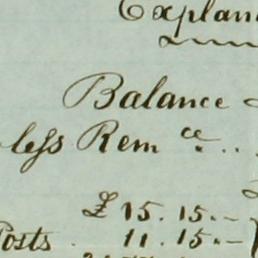 Explan
Balance
less Rem ce ..
£ 15. 15. -
Posts . 11. 15. -